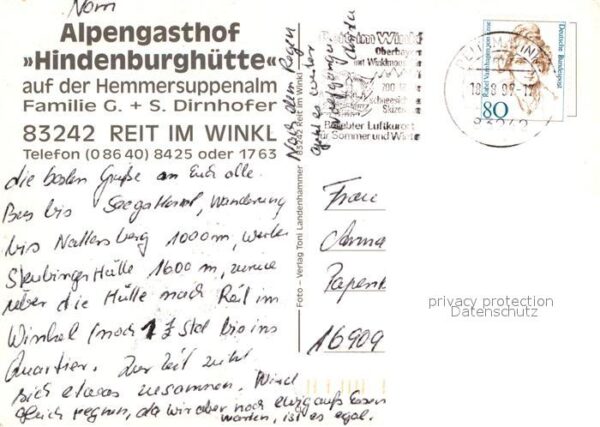 Vom
Alpengasthof
»Hindenburghütte«
auf der Hemmersuppenalm
Familie G. + S. Dirnhofer
83242 REIT IM WINKL
Telefon (0 86 40) 8425 oder 1763
die besten Grüße an Euch alle.
Bus bis Seegatterl, Wanderung
bis Nattersberg 1000m, weiter
Hütte 1600 m, zurück
über die Hütte nach Reit im
Winkel (noch 1 Std bis ins
Quartier. Zur Zeit zieht
sich etwas zusammen. Wird
gleich regnen, da wir aber noch ewig aufs Essen
warten, ist es egal.
Nach dem Regen
geht es weiter
Foto – Verlag Toni Landenhammer
83242 Reit im Winkl
Reit im Winkl
Oberbayern
mit Winklmoosalm
700
schneesicheres
Beliebter Luftkurort
für Sommer und Winter
REIT IM WINKL
83242
Deutsche Bundespost
Rahel Varnhagen von Ense
80
Frau
Anna
Papen
16909
privacy protection
Datenschutz